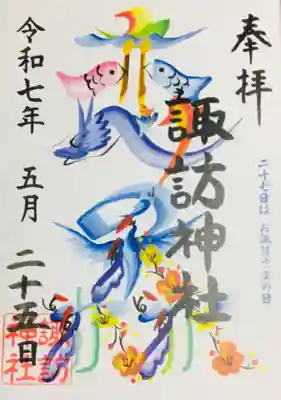 奉拝
二十七日は お諏訪さまの日
諏訪神社
令和七年 五月 二十五日
諏訪
神社